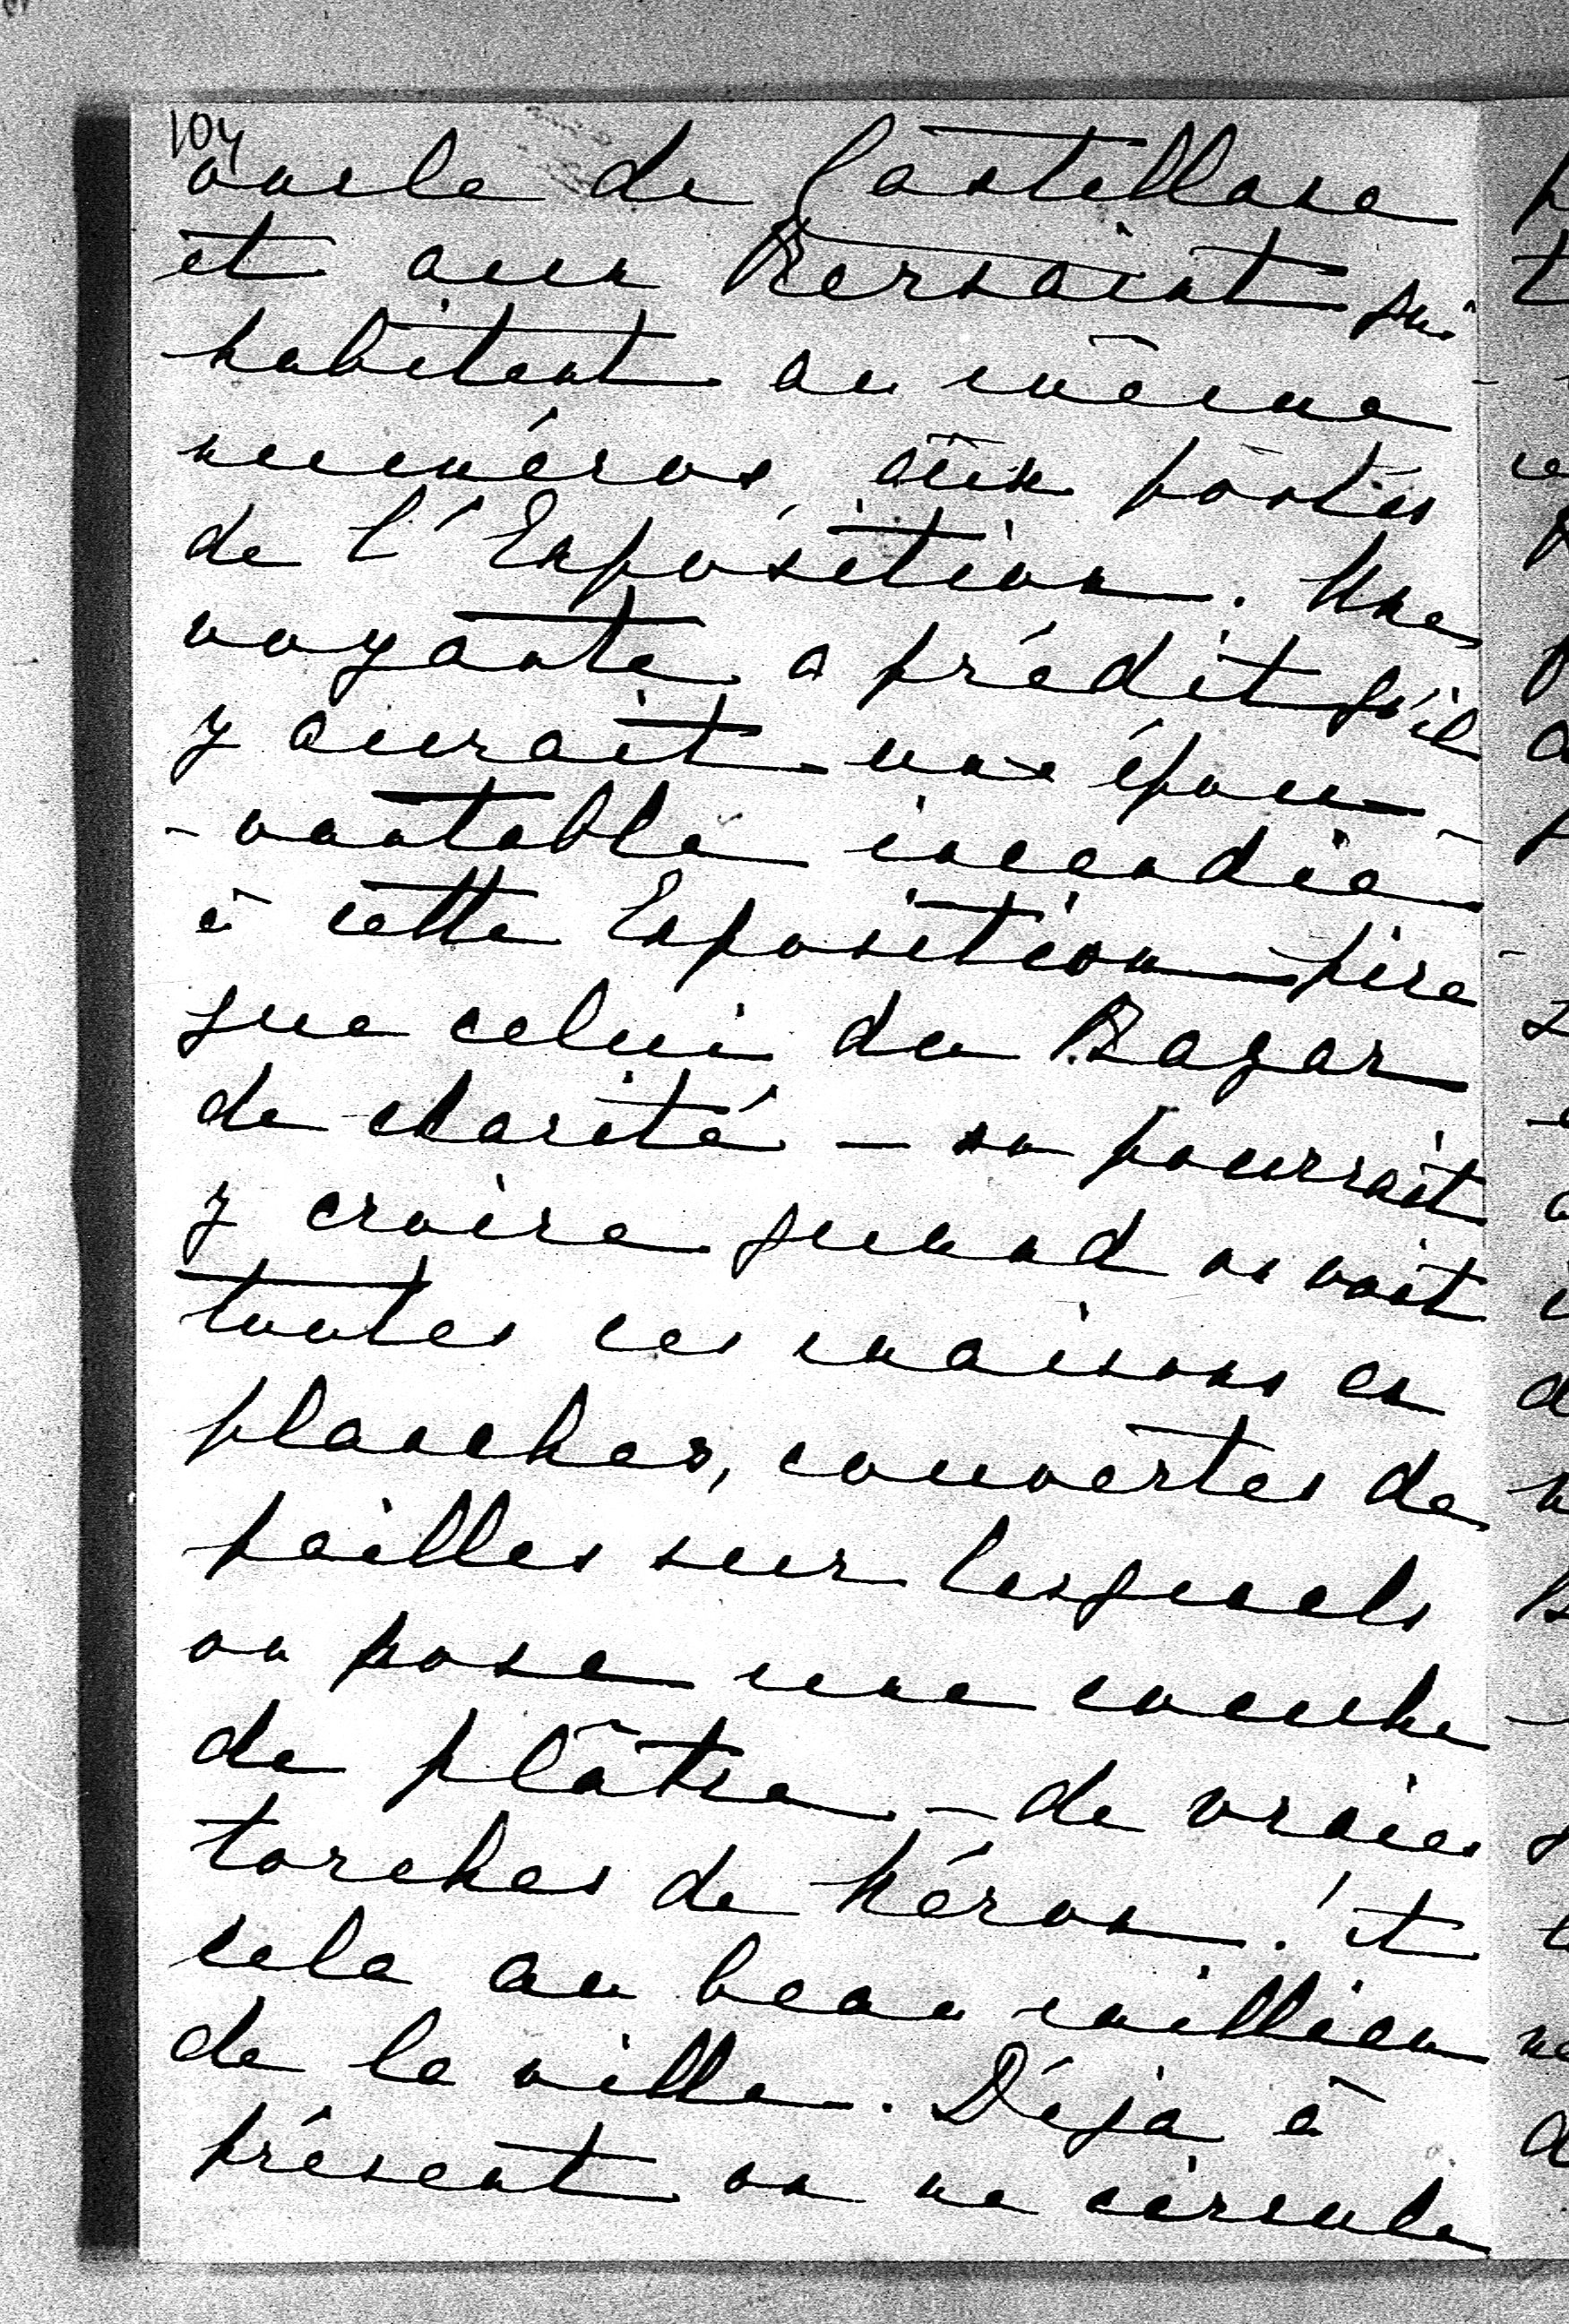 104
oncle de Castellane
et aux Kersaint qui
habitent au même
numéros, aux portes
de l'Exposition. Une
voyante a prédit qu'il
y aurait une épou-
-vantable incendie
à cette Exposition pire
que celui du Bazar
de charité — on pourrait
y croire quand on voit
toutes ces maisons en
planches, couvertes de
pailles sur lesquels
on pose une couche
de plâtre — de vraies
torches de Néron. Et
cela au beau millieu
de la ville. Déja à
présent on ne circule